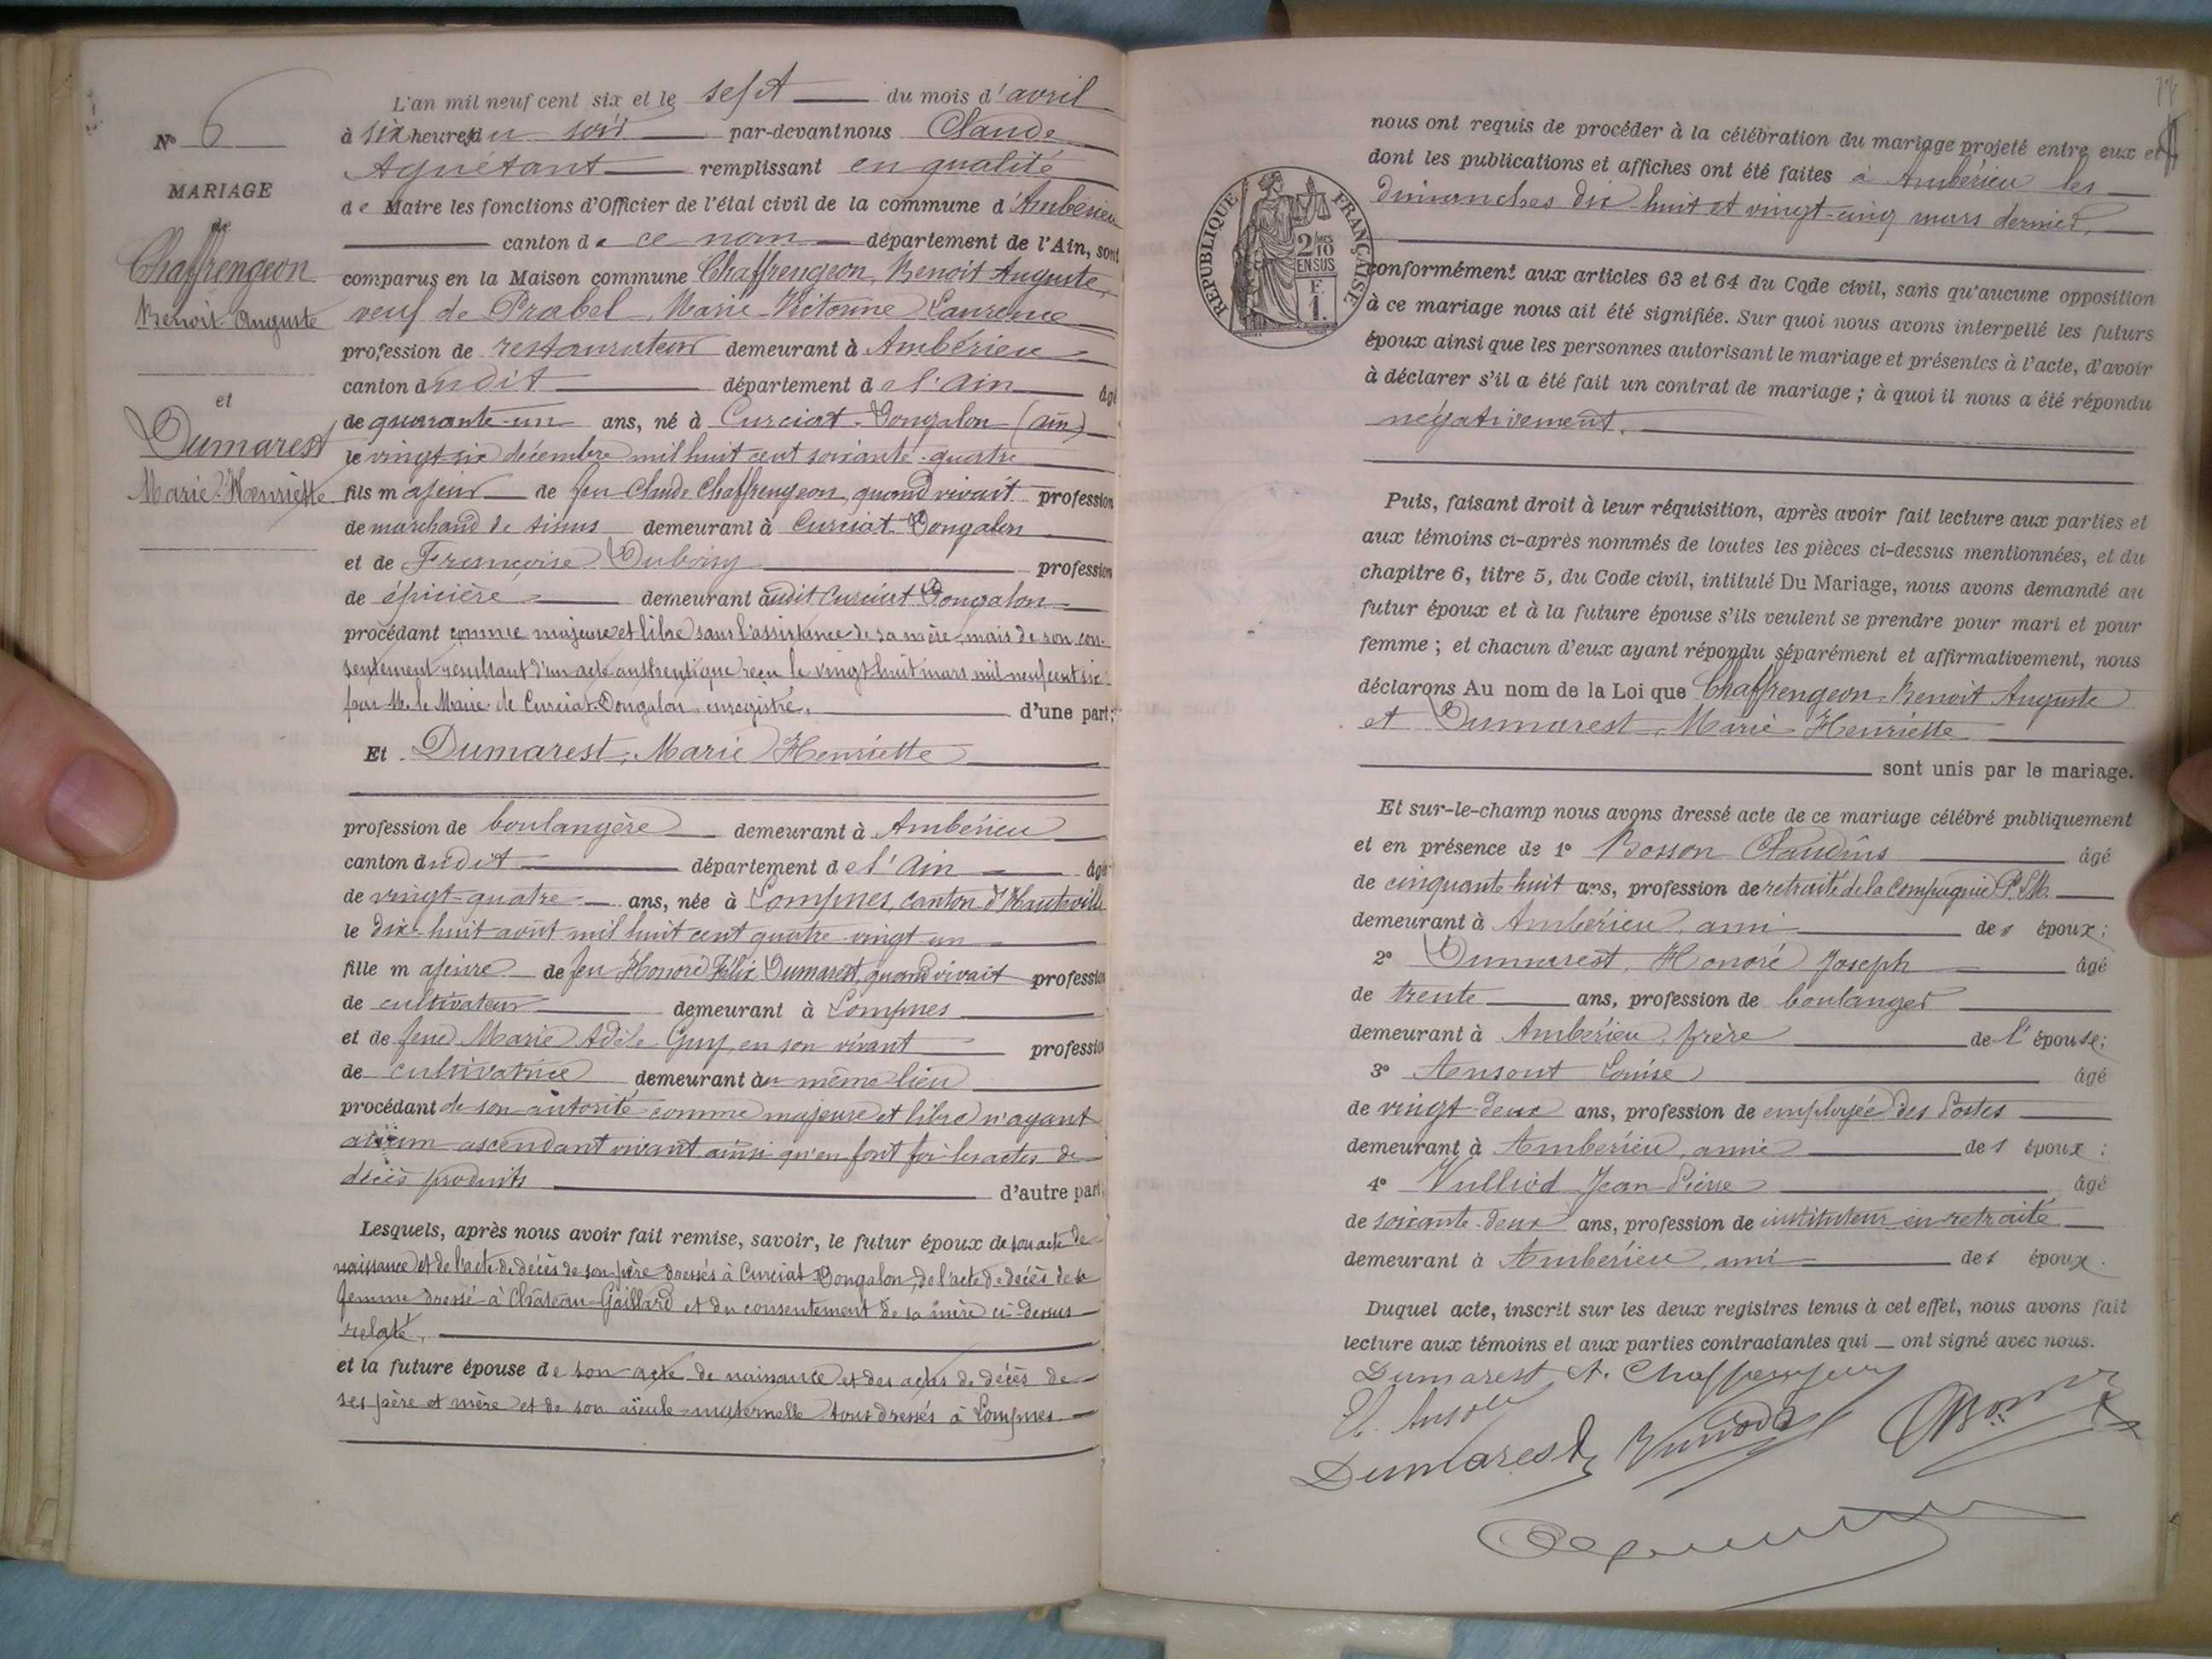 N° 6
MARIAGE
de
Chaffrengeon
Benoit Auguste
et
Dumarest
Marie Henriette
L'an mil neuf cent six et le sept du mois d'avril
à six heures du soir par-devant nous Claude
Aguétant remplissant en qualité
de Maire les fonctions d'Officier de l'état civil de la commune d'Ambérieu
canton de ce nom département de l'Ain, sont
comparus en la Maison commune Chaffrengeon, Benoit Auguste,
veuf de Prabel, Marie Victorine Laurence
profession de restaurateur demeurant à Ambérieu
canton dudit département de l'Ain âgé
de quarante-un ans, né à Curciat-Dongalon (Ain)
le vingt-six décembre mil huit cent soixante-quatre
fils majeur de feu Claude Chaffrengeon, quand vivait profession
de marchand de tissus demeurant à Curciat-Dongalon
et de Françoise profession
de épicière demeurant audit Curciat Dongalon
procédant comme majeur et libre sans l'assistance de sa mère, mais de son con-
sentement résultant d'un acte authentique reçu le vingt huit mars mil neuf cent six
par M. le Maire de Curciat-Dongalon, enregistré. d'une part;
Et Dumarest, Marie Henriette
profession de boulangère demeurant à Ambérieu
canton dudit département de l'Ain âgée
de vingt-quatre ans, née à Lompnes, canton d'Hauteville
le dix-huit août mil huit cent quatre-vingt un
fille majeure de feu Honoré Félix Dumarest, quand vivait profession
de cultivateur demeurant à Lompnes
et de feue Marie Adèle Guy, en son vivant profession
de cultivatrice demeurant au même lieu
procédant de son autorité comme majeure et libre n'ayant
aucun ascendant vivant ainsi qu'en font foi les actes de
décès produits d'autre part;
Lesquels, après nous avoir fait remise, savoir, le futur époux de son acte de
naissance et de l'acte de décès de son père dressés à Curciat Dongalon, de l'acte de décès de sa
femme dressé à Château-Gaillard et du consentement de sa mère ci-dessus
relaté.
et la future épouse de son acte de naissance et des actes de décès de
ses père et mère et de son aïeule maternelle tous dressés à Lompnes.
nous ont requis de procéder à la célébration du mariage projeté entre eux et
dont les publications et affiches ont été faites à Ambérieu les
dimanches dix-huit et vingt-cinq mars dernier.
RÉPUBLIQUE FRANÇAISE
2/10
EN SUS
F.
1.
conformément aux articles 63 et 64 du Code civil, sans qu'aucune opposition
à ce mariage nous ait été signifiée. Sur quoi nous avons interpellé les futurs
époux ainsi que les personnes autorisant le mariage et présentes à l'acte, d'avoir
à déclarer s'il a été fait un contrat de mariage ; à quoi il nous a été répondu
négativement.
Puis, faisant droit à leur réquisition, après avoir fait lecture aux parties et
aux témoins ci-après nommés de toutes les pièces ci-dessus mentionnées, et du
chapitre 6, titre 5, du Code civil, intitulé Du Mariage, nous avons demandé au
futur époux et à la future épouse s'ils veulent se prendre pour mari et pour
femme ; et chacun d'eux ayant répondu séparément et affirmativement, nous
déclarons Au nom de la Loi que Chaffrengeon, Benoit Auguste
et Dumarest, Marie Henriette
sont unis par le mariage.
Et sur-le-champ nous avons dressé acte de ce mariage célébré publiquement
et en présence de 1° Bosson Claudius âgé
de cinquante huit ans, profession de retraité de la Compagnie P.L.M.
demeurant à Ambérieu, ami des époux;
2° Dumarest, Honoré Joseph âgé
de trente ans, profession de boulanger
demeurant à Ambérieu, frère de l'épouse;
3° Ansout Louise âgé
de vingt-deux ans, profession de employée des Postes
demeurant à Ambérieu, amie des époux ;
4° Vulliod Jean Pierre âgé
de soixante-deux ans, profession de instituteur en retraite
demeurant à Ambérieu, ami des époux.
Duquel acte, inscrit sur les deux registres tenus à cet effet, nous avons fait
lecture aux témoins et aux parties contractantes qui ont signé avec nous.
Dumarest A. Chaffrengeon
Dumarest Vulliod